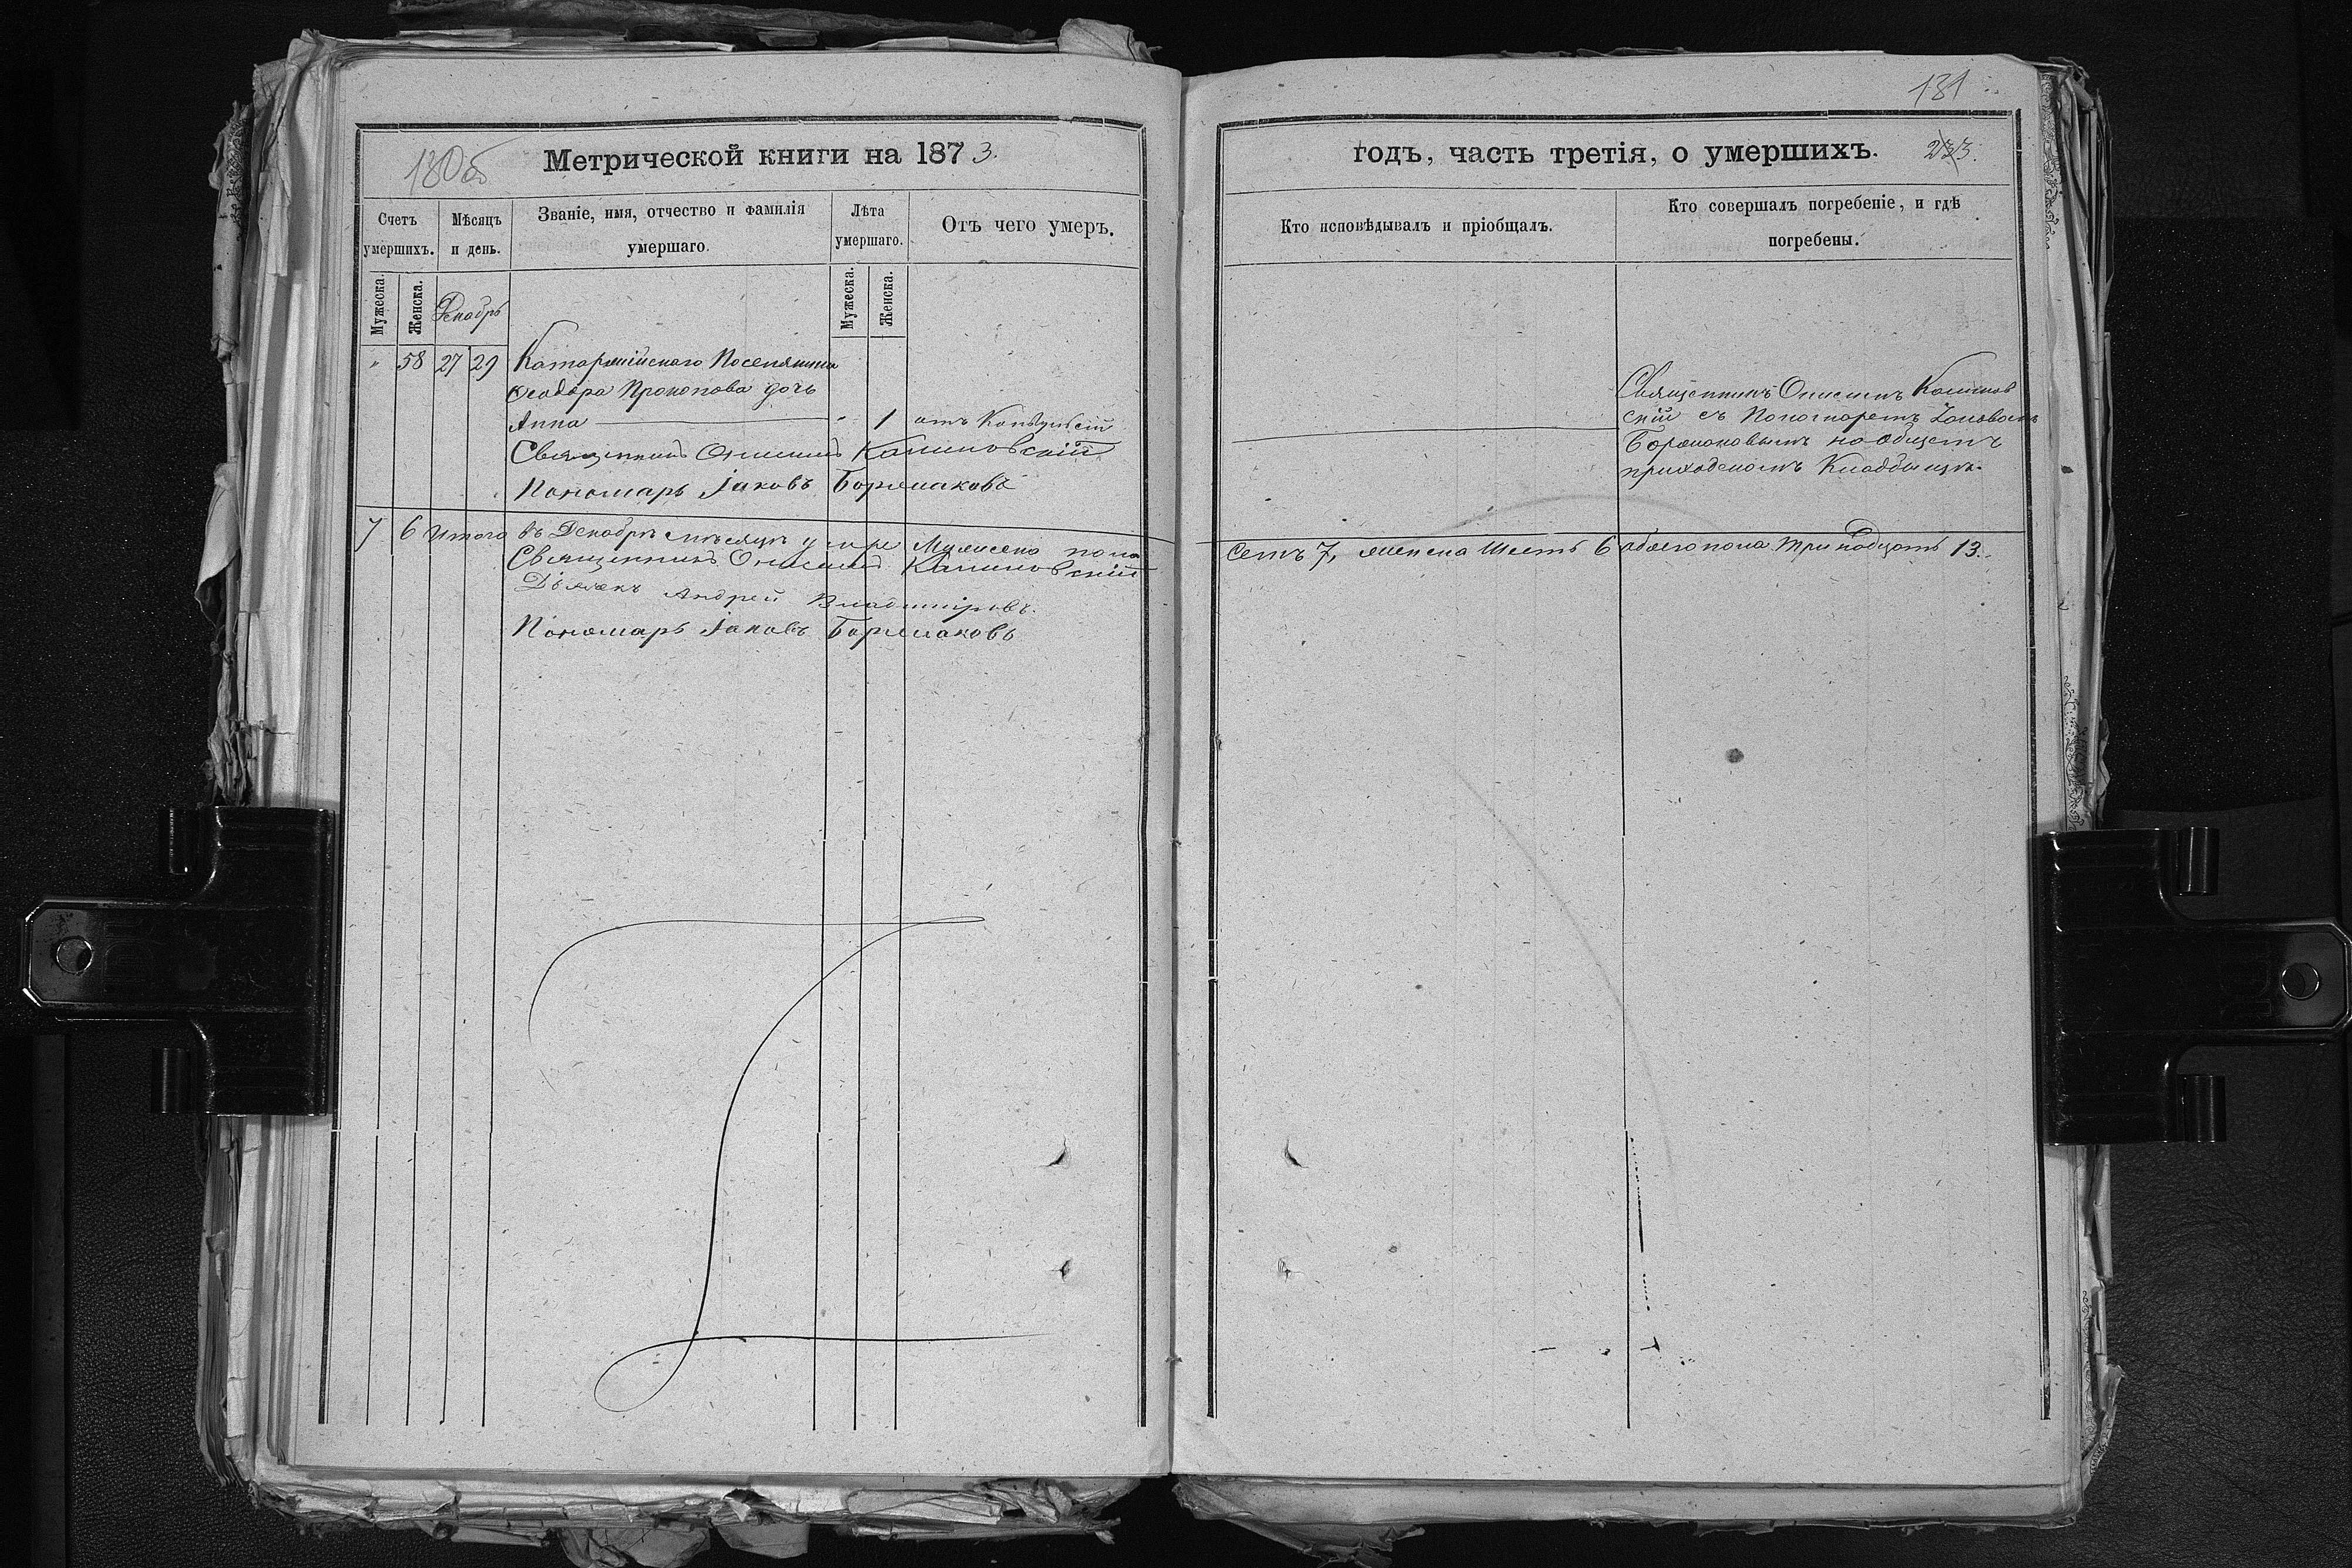 130об
Метрической книги на 1873.
Счетъ умершихъ.
Мѣсяцъ и день.
Званіе, имя, отчество и фамилія умершаго.
Лѣта умершаго.
Отъ чего умеръ.
Мужеска.
Женска.
Декабрь
Мужеска.
Женска.
" 58 27 29 Катаржійскаго Поселянина
Ѳеодора Прокопова дочь
Анна " 1 отъ
Священникъ Онисимъ Калиновскій
Пономарь Іаковъ
7 6 Итого въ Декабрѣ мѣсяцѣ умре Мужеска пола
Священникъ Онисимъ Калиновскій
Дьячекъ Андрей Владиміровъ.
Пономарь Іаковъ
131
годъ, часть третія, о умершихъ. 233.
Кто исповѣдывалъ и пріобщалъ.
Кто совершалъ погребеніе, и гдѣ погребены.
Священникъ Онисимъ Калинов
скій съ Пономаремъ Іаковомъ
на общемъ
приходскомъ Кладбищѣ.
Семь 7, женска Шесть 6 обоего пола Тринадцать 13.